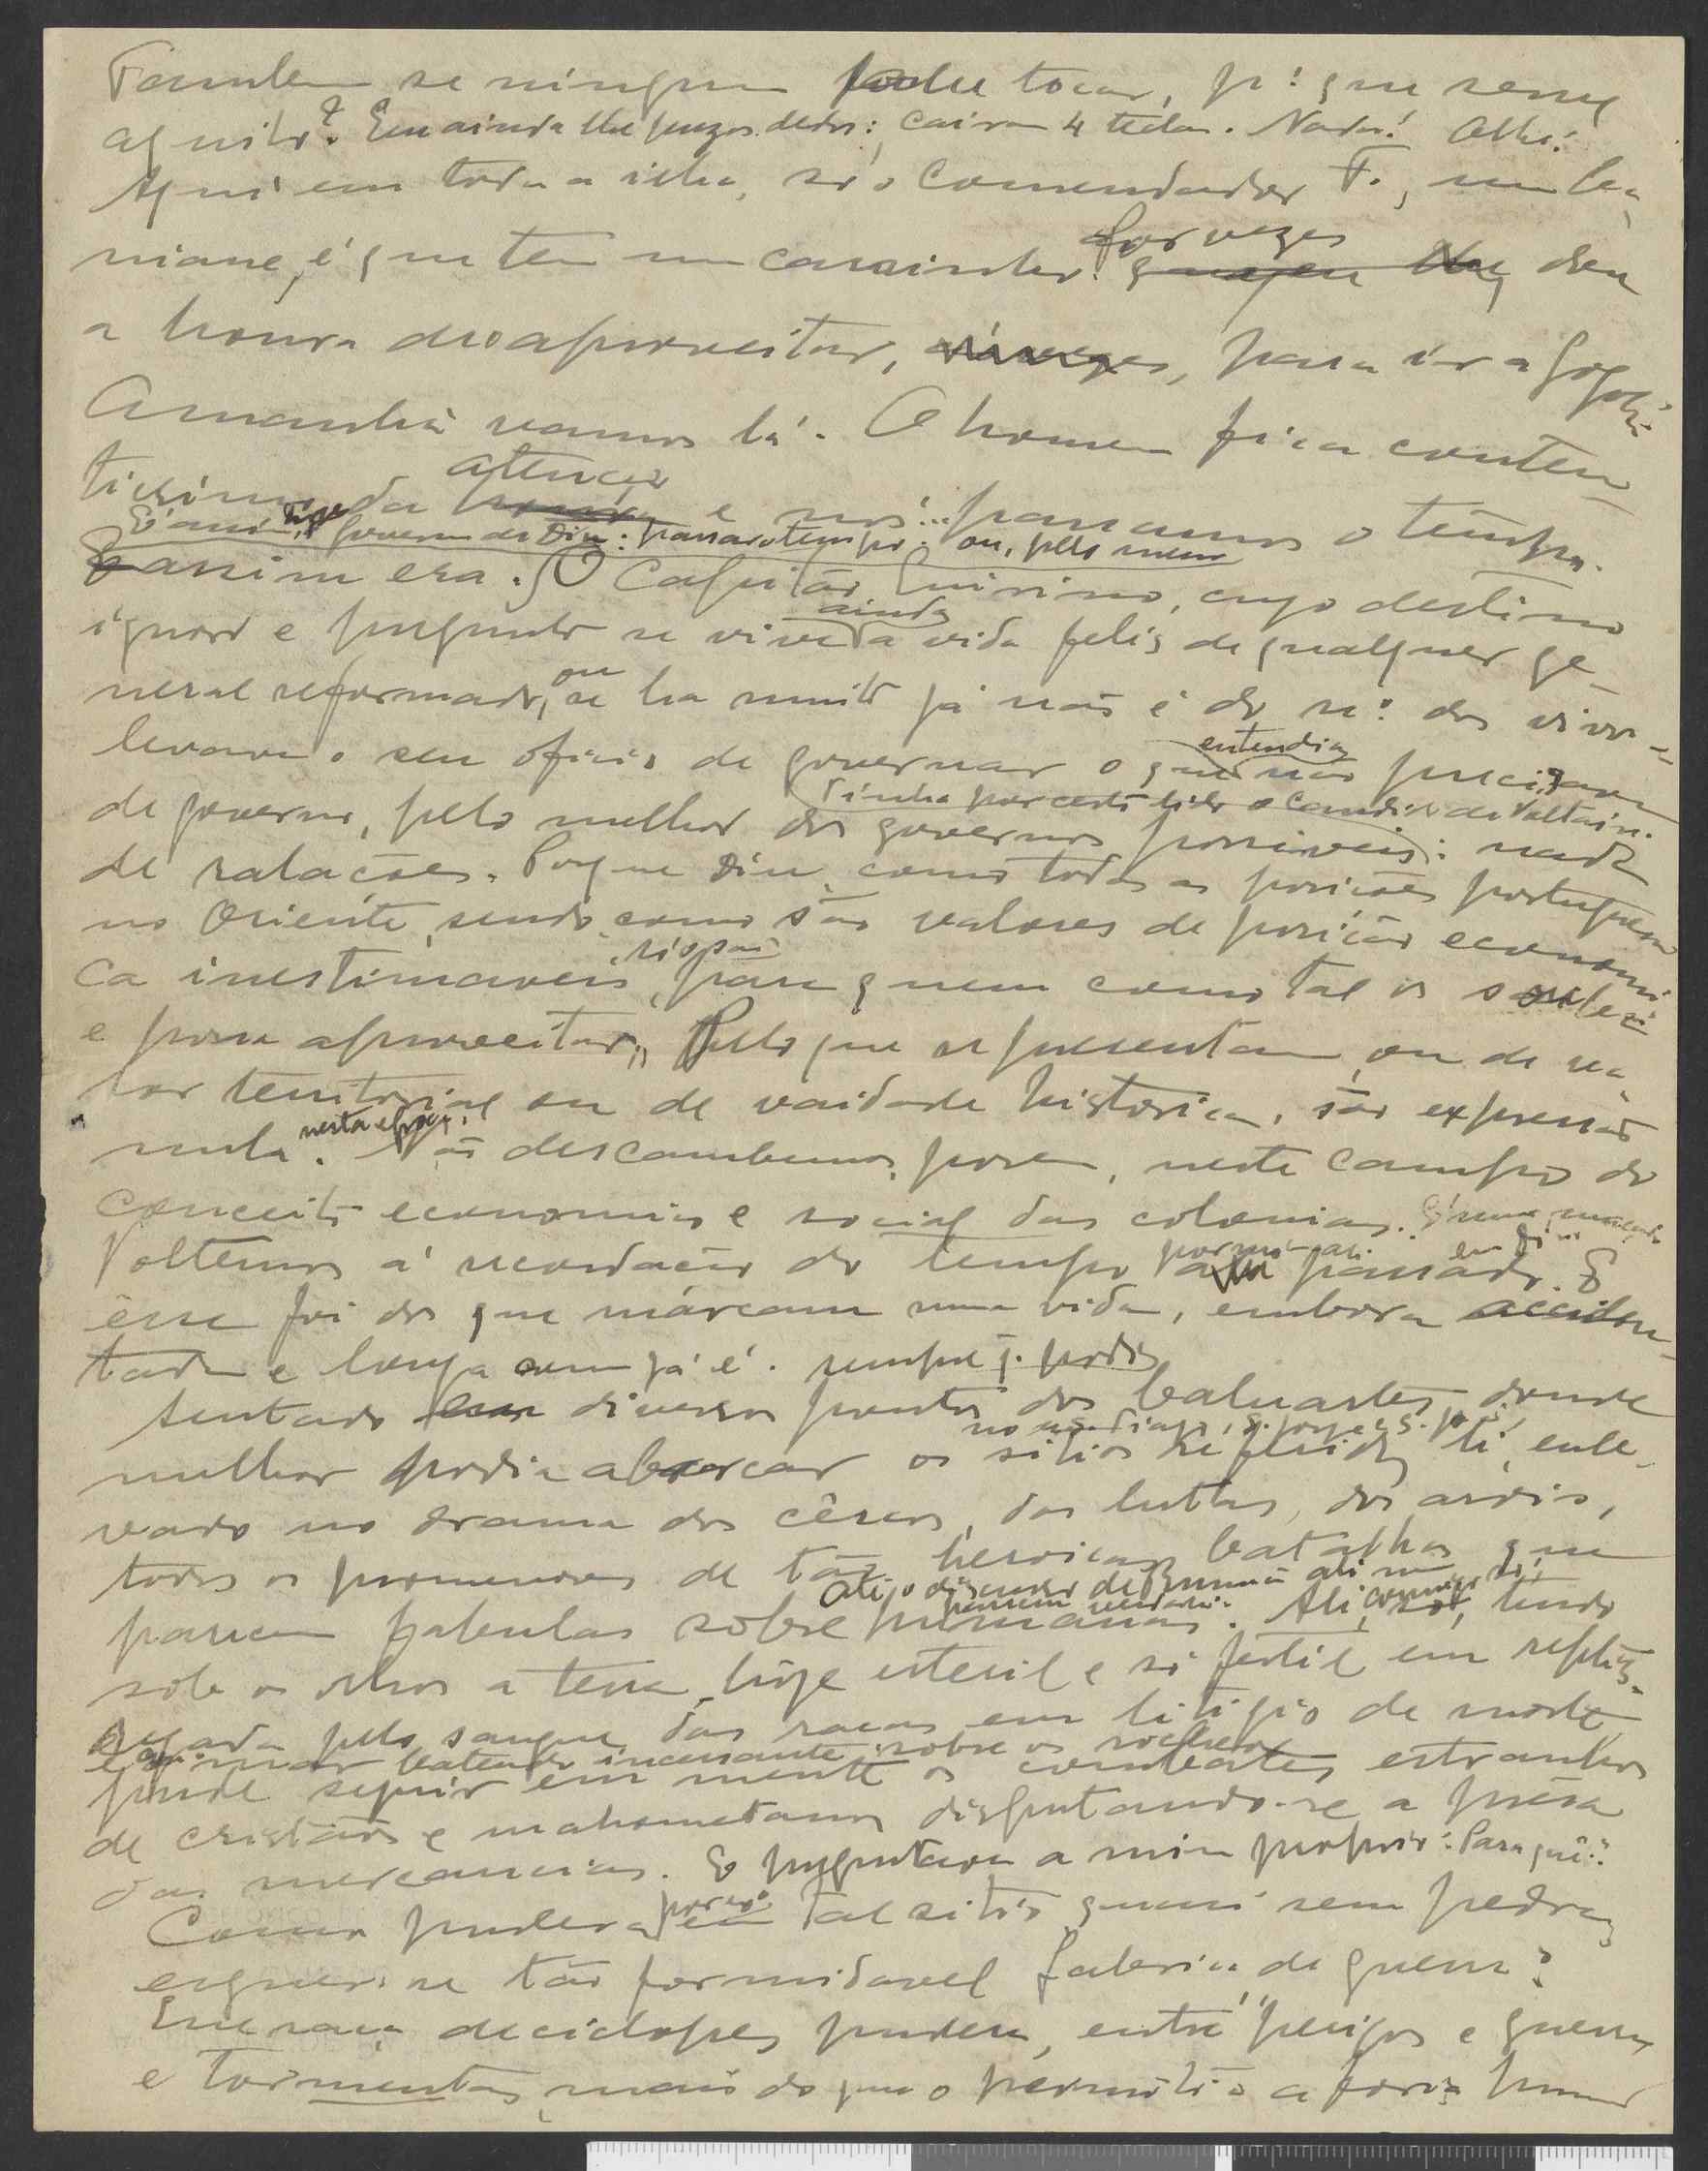 Tambem se ninguem pode tocar, p.ª que serve
aquilo? Eu ainda lhe puz os dedos: Cairam 4 teclas. Nada! Olhe:
Aqui em toda a ilha, só o Comendador F., um ba-
niane, é que tem um carrinho. por vezes deu
a honra de o aproveitar, para ír a Gogolá.
Amanhã vamos lá. O homem fica conten-
tissimo da atenção e nós... passamos o tempo.
É assim, hoje, o governo de Diu: passar o tempo. ou, pelo menos
assim era. O Capitão Quirino, cujo destino
ignoro e pergunto se vive ainda a vida feliz de qualquer ge-
neral reformado, ou se ha muito já não é do n.º dos vivos -
levava o seu oficio de governar o que entendia não precisava
Tinha por certo lido o Candide de Voltaire.
de governo, pelo melhor dos governos possiveis: nada
de ralações. Porque Diu, como todas as posições portuguesas
no Oriente, sendo como são valores de posição economi-
ca inestimaveis, só o são para quem como tal os souber
e possa aproveitar. Pelo que representam, ou de va-
lor territorial ou de vaidade historica, são expressão
nula. nesta epoca. Não descambemos, porem, neste campo do
conceito economico e social das colonias.
Voltemos á recordação do tempo por mim ali passado em Diu. E
êsse foi dos que márcam uma vida, embora acciden-
tada e longa como já é. sempre q. podia
Sentado em diversos pontos dos baluartes donde
melhor podia abarcar os sitios referidos no
vado no drama dos cêrcos, das luttas, dos ardis,
todos os promenores de tão heroicas batalhas que
parecem fabulas sobre humanas. Ali, comigo só, tendo
sob os olhos a terra, hoje esteril e só fertil em reptis.
regada pelo sangue das raças em litigio de morte,
e o mar batendo incessante sobre os rochedos
pude seguir em mente os combates estranhos
de cristãos e mahometanos disputando-se a prêsa
das mercancias. E perguntava a mim proprio: Para quê?
Como pudera, porem, em tal sitio quasi sem pedras
erguer-se tão formidavel fabrica de guerra?
Que raça de ciclopes pudera, entre perigos e guerras
e tormentas, mais do que o permitia a força huma